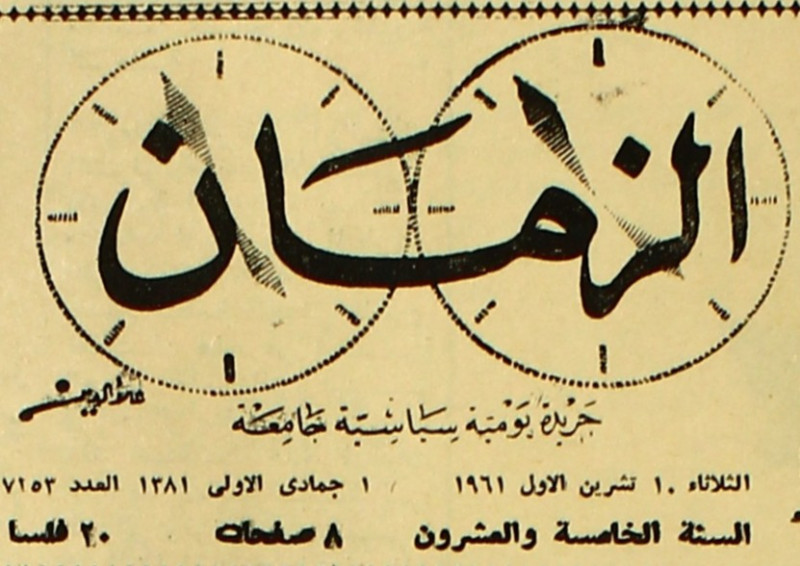 الزمان
علاءالدين
جَرْيَدة يَوْميَة سِيَاسِيّة جَامِعَة
الثلاثاء ١٠ تشرين الاول ١٩٦١ ١ جمادى الاولى ١٣٨١ العدد ٧٢٥٣
السنة الخامسة والعشرون ٨ صفحات ٢٠ فلسا